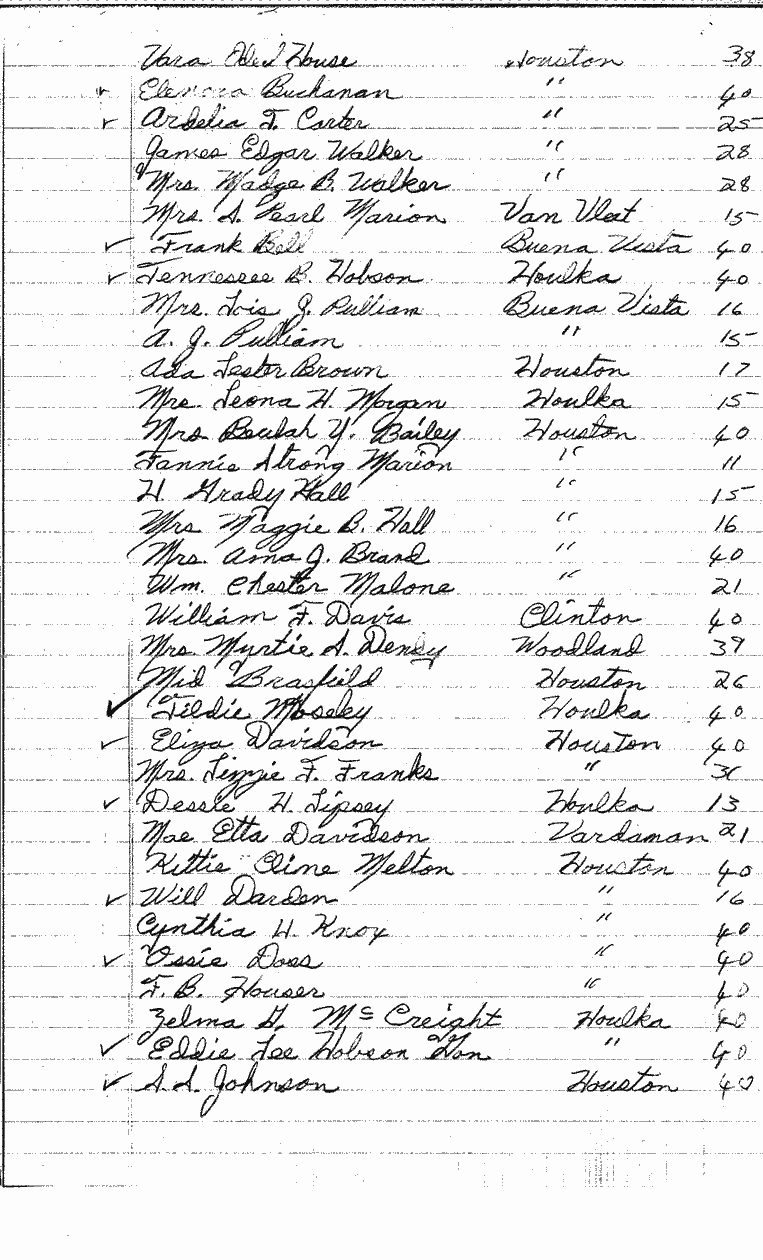 Vara Odel House Houston 38
✓ Elenora Buchanan " 40
✓ Ardelia F. Carter " 25
James Edgar Walker " 28
Mrs. Madge B. Walker " 28
Mrs. S. Pearl Marion Van Vleet 15
✓ Frank Bell Buena Vista 40
✓ Tennessee B. Hobson Houlka 40
Mrs. Lois J. Pulliam Buena Vista 16
A. J. Pulliam " 15
Ada Lester Brown Houston 17
Mrs. Leona H. Morgan Houlka 15
Mrs. Beulah Y. Bailey Houston 40
Fannie Strong Marion " 11
H. Grady Hall " 15
Mrs. Maggie B. Hall " 16
Mrs. Ama J. Brand " 40
Wm. Chester Malone " 21
William F. Davis Clinton 40
Mrs. Myrtie S. Dendy Woodland 39
Mid Brasfield Houston 26
✓ Tildie Moseley Houlka 40
✓ Eliza Davidson Houston 40
Mrs. Lizzie F. Franks "
✓ Dessie H. Lipsey Houlka 13
Mae Etta Davidson Vardaman 21
Kittie Cline Melton Houston 40
✓ Will Darden " 16
Cynthia H. Knox " 40
✓ Ossie Doss " 40
F. B. Houser " 40
Zelma G. McCreight Houlka 40
✓ Eddie Lee Hobson " 40
✓ S. S. Johnson Houston 40